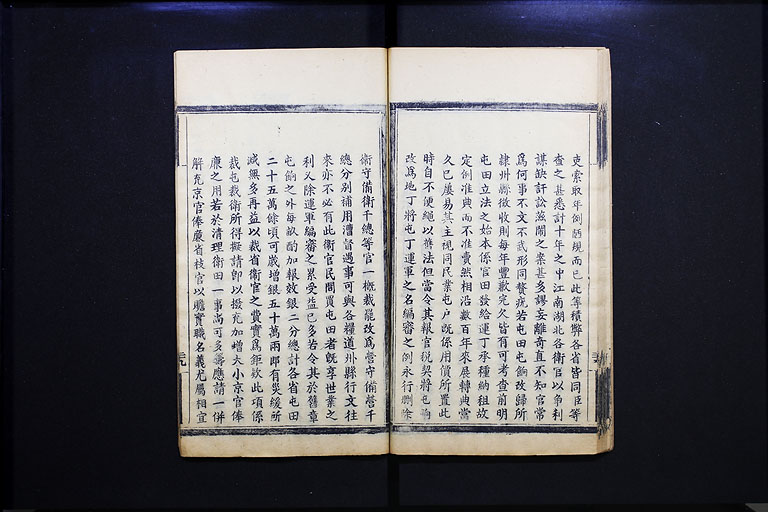 吏索取年例陋規而已此等積弊各省皆同臣等
查之甚悉計十年之中江南湖北各衛官以爭利
謀缺訐訟蒸聞之案甚多謬妄離奇直不知官常
爲何事不文不武形同贅疣若屯田屯餉改歸所
隸州縣徵收則每年豐歉完欠皆有可考查前明
屯田立法之始本係官田發給運丁承種納租故
定例准典而不准賣然相沿數百年來展轉典當
久已屢易其主視同民業屯戶既係用價所置此
時自不便繩以舊法但當令其報官稅契將屯餉
改爲地丁將屯丁運軍之名編審之例永行刪除
衛守備衛千總等官一概裁罷改爲營守備營千
總分別補用漕督遇事可與各糧道州縣行文往
來亦不必有此衛官民間買屯田者既享世業之
利又除運軍編審之累受益已多若令其於舊章
屯餉之外每畝酌加報效銀二分總計各省屯田
二十五萬餘頃可歲增銀五十萬兩即有災緩所
減無多再益以裁省衛官之費實爲鉅款此項係
裁屯裁衛所得擬請即以撥充加增大小京官俸
廉之用若於清理衛田一事尚可多籌應請一併
解充京官俸廉省枝官以贍實職名義尤屬相宜